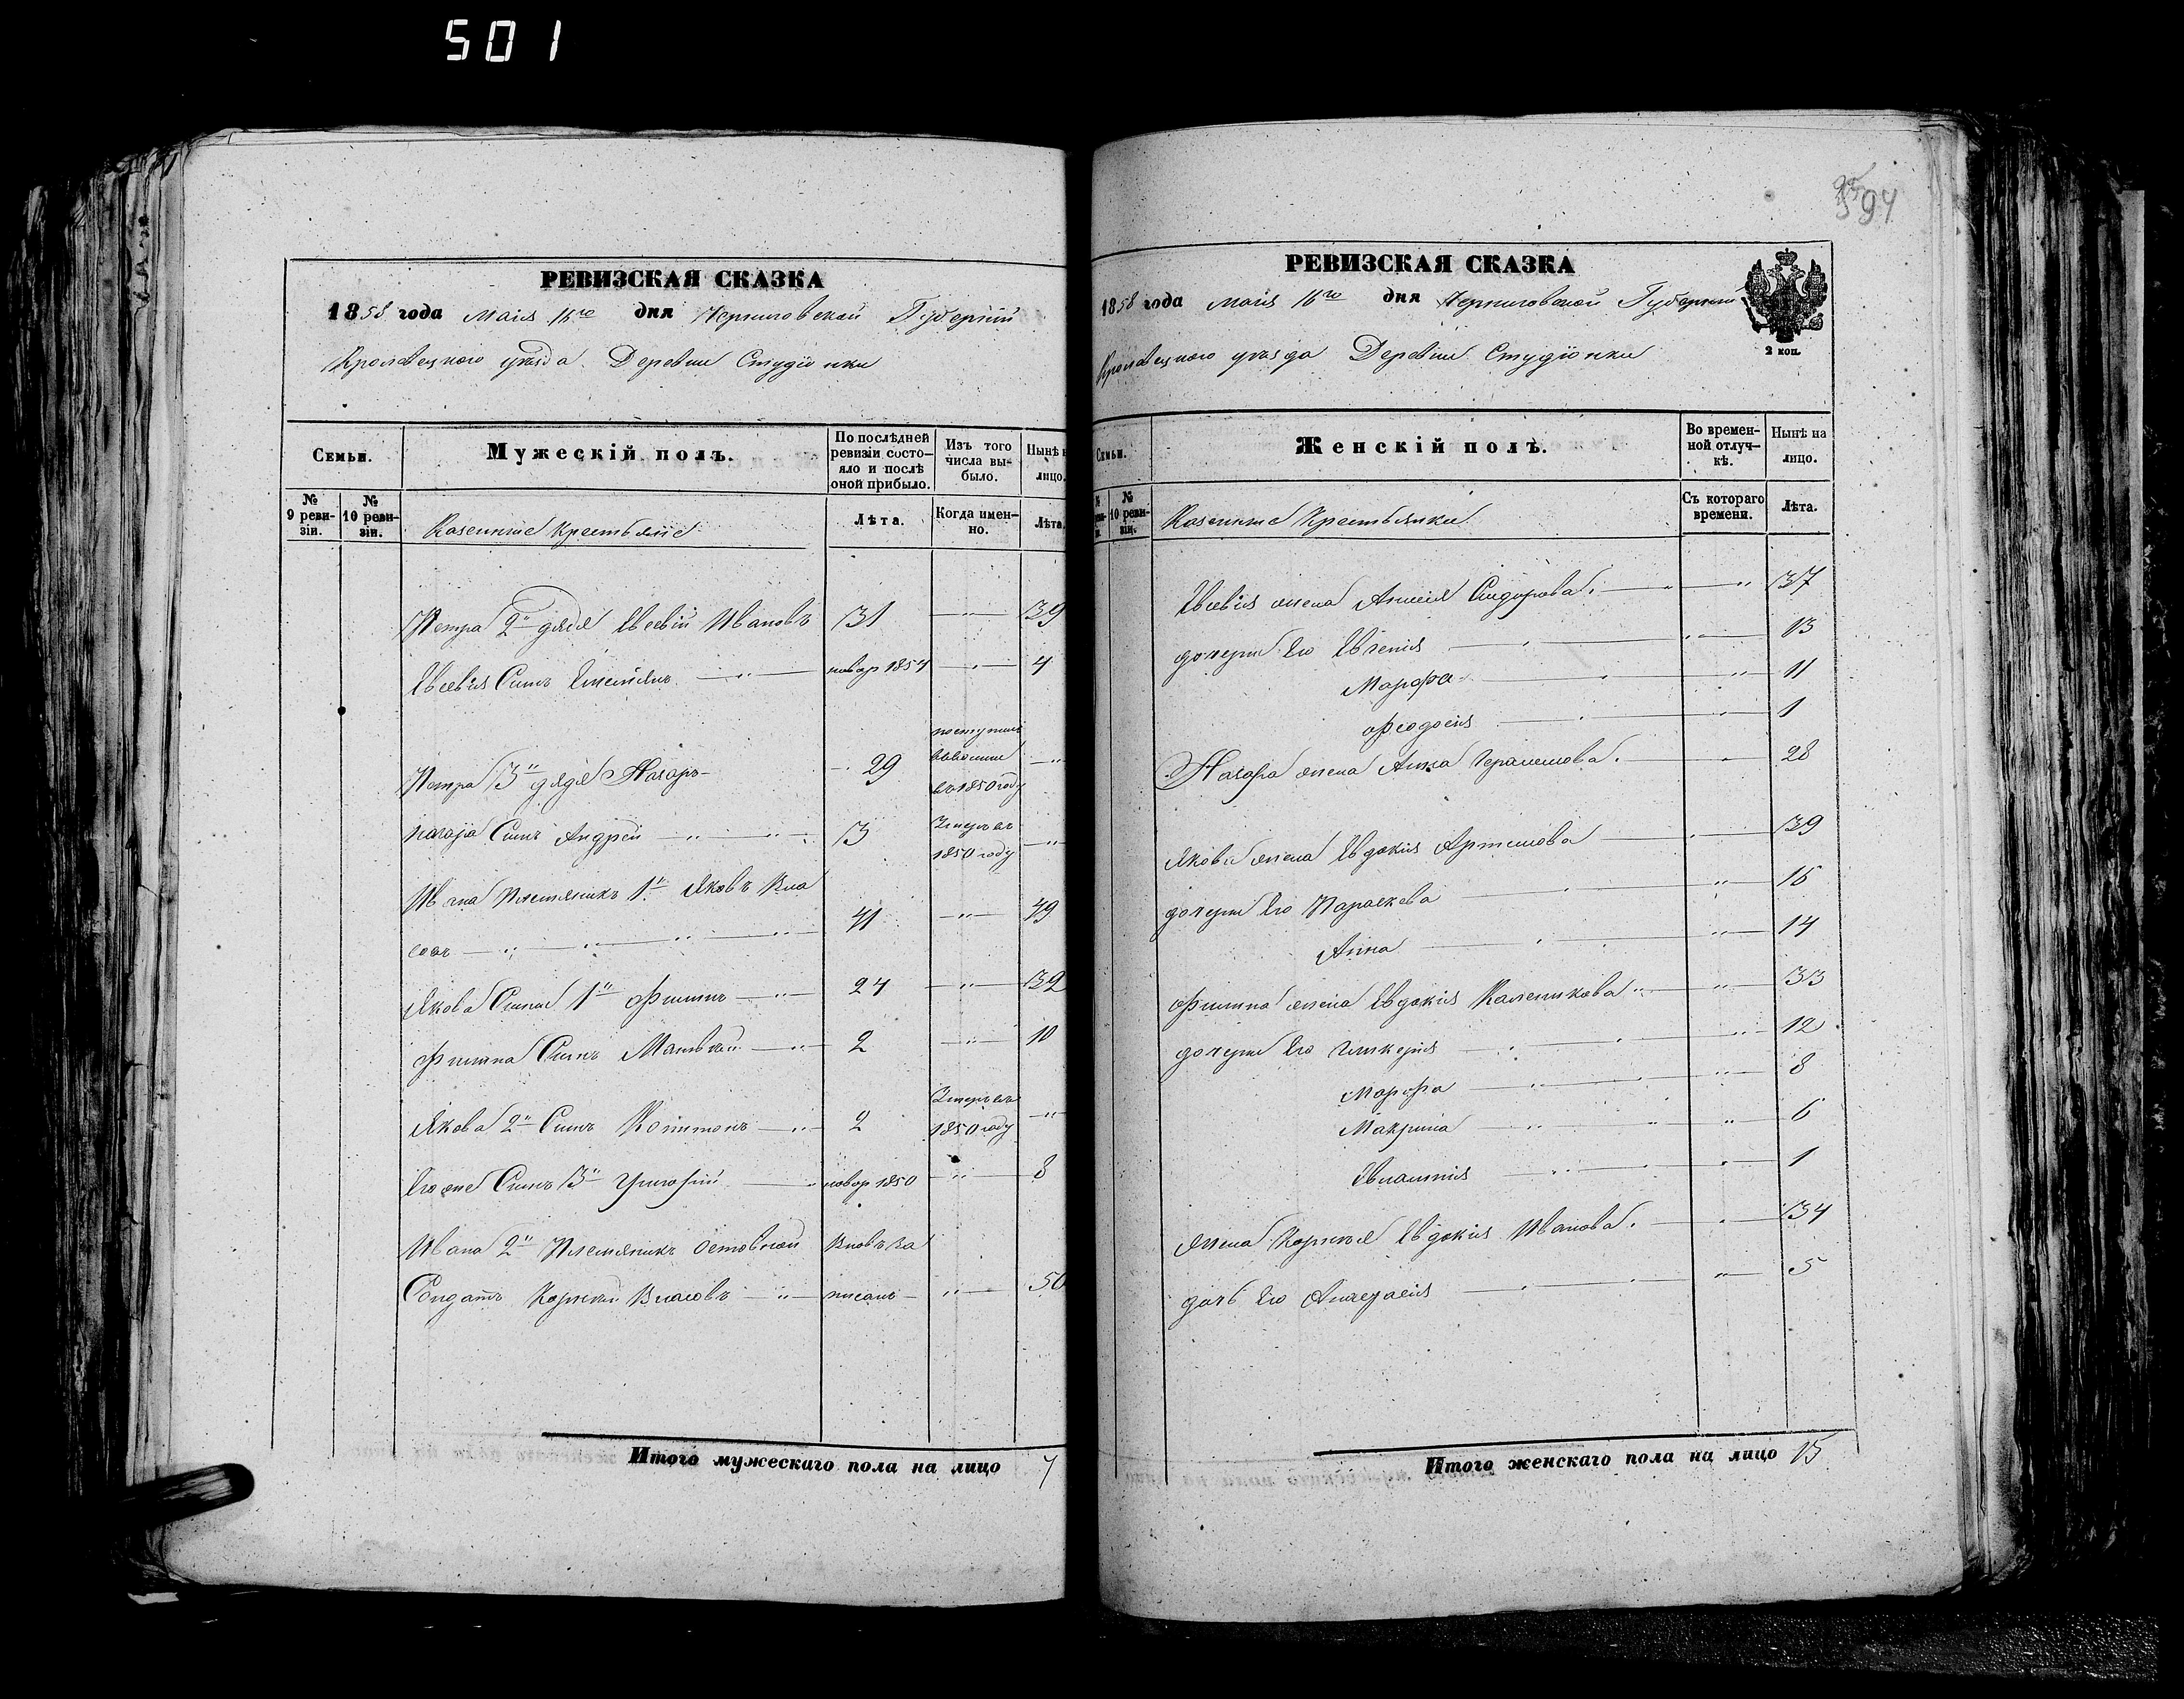 501
594
РЕВИЗСКАЯ СКАЗКА
1858 года Маія 16го дня Черниговской Губерніи
Кролевецкого уѣзда Деревни Студіонки
Семьи.
Мужескій полъ.
По послѣдней ревизіи состояло и послѣ оной прибыло.
Изъ того числа выбыло.
Нынѣ н лицо.
№ 9 ревизіи.
№ 10 ревизіи.
Казенные Крестьяне
Лѣта.
Когда именно.
Лѣта.
Петра 2й дядя Евсевій Ивановъ 31 — 39
Евсевія Сынъ Емельянъ — новор 1854 — 4
Петра 3й дядя Назаръ — 29 поступилъ в 1850 году —
Назара Сынъ Андрей — 13 Умеръ въ 1850 году —
Ивана Племянникъ 1й Яковъ Вла
совъ — 41 — 49
Якова Сыны 1й Филипъ — 24 — 32
Филипа Сынъ Матвѣй — 2 — 10
Якова 2й Сынъ Капитонъ — 2 Умеръ въ 1850 году "
Его же Сынъ 3й Григорій — новор 1850 — 8
Ивана 2й Племянникъ Отставной Вновь за
Солдатъ Корнѣй Власовъ — писанъ — 50
Итого мужескаго пола на лицо 7
РЕВИЗСКАЯ СКАЗКА
1858 года Маія 16го дня Черниговской Губерніи
Кролевецкого уѣзда Деревни Студіонки
2 коп.
Семьи.
Женскій полъ.
Во временной отлучкѣ.
Нынѣ на лицо.
№ 10 ревизіи.
Казенные Крестьянки
Съ котораго времени.
Лѣта.
Евсевія жена Сидорова. — " 37
дочери Его Евгенія — 13
Марфа — " 11
Феодосія — 1
Назара жена Анна Герасимова. — 28
Якова жена Евдокія Артемова — 39
дочери Его Параскева — " 16
Анна — " 14
Филипа жена Евдокія Каленикова " — " 33
дочери Его Гликерія — " 12
Марфа — " 8
Макрина — " 6
Евлампія — 1
Жена Корнѣя Евдокія Иванова. — 34
дочь Его — " 5
Итого женскаго пола на лицо 15